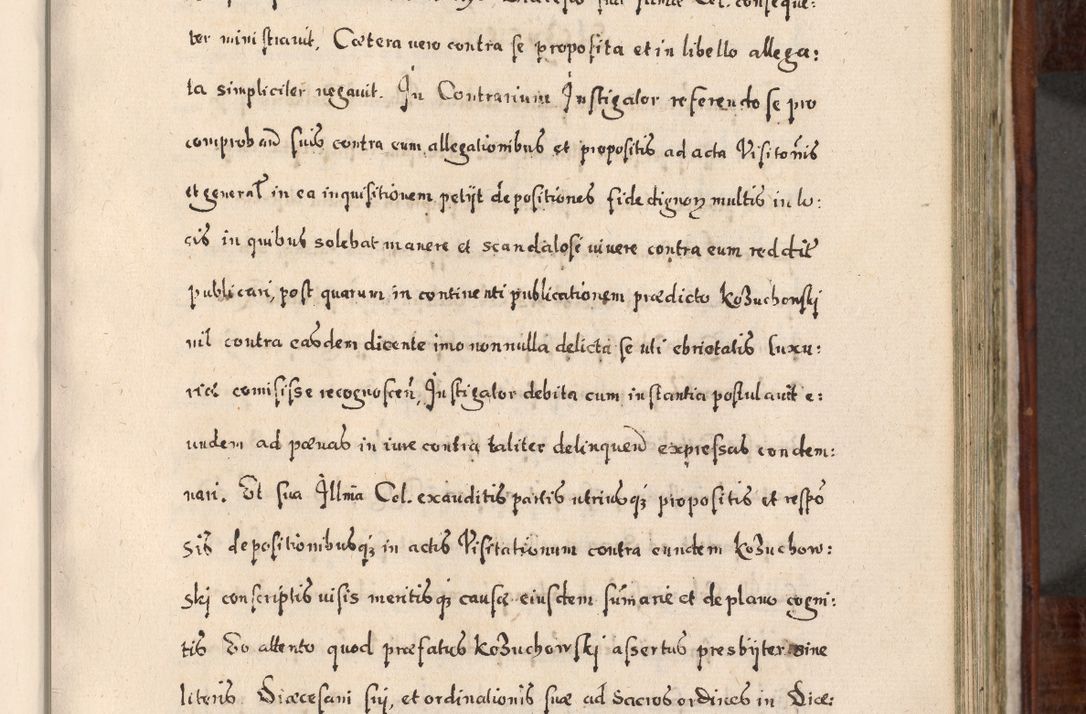 ter ministrauit, Cœtera vero contra se proposita et in libello allega:
ta simpliciter negauit. In Contrarium Instigator referendo se pro
comproband̃ suis contra eum allegationibus et propositis ad acta Visitõnis
et general̃ in ea inquisitionem petijt depositiones fide dignoꝝ multis in lo:
cis in quibus solebat manere et scandalosè viuere contra eum reddit̃
publicari, post quarum in continenti publicationem prædicto Kożuchowski
nil contra easdem dicente imo nonnulla delicta se uti ebrietatis luxu:
riæ comisisse recognoscen̄, Instigator debita cum instantia postulauit e:
undem ad pœnas in iure contra taliter delinquen̄ expressas condem:
nari. Et sua Illma Cel. exauditis partis utriusqꝫ propositis et respõ
sis depositionibusqꝫ in actis Visitationum contra eundem Kożuchow:
ski conscriptis visis meritisqꝫ causæ eiusdem sum̃arie et de plano cogni:
tis Eo attento quod præfatus Kożuchowski assertus presbijter sine
literis Diæcesani sui, et ordinationis suæ ad sacros ordines in Diæ: